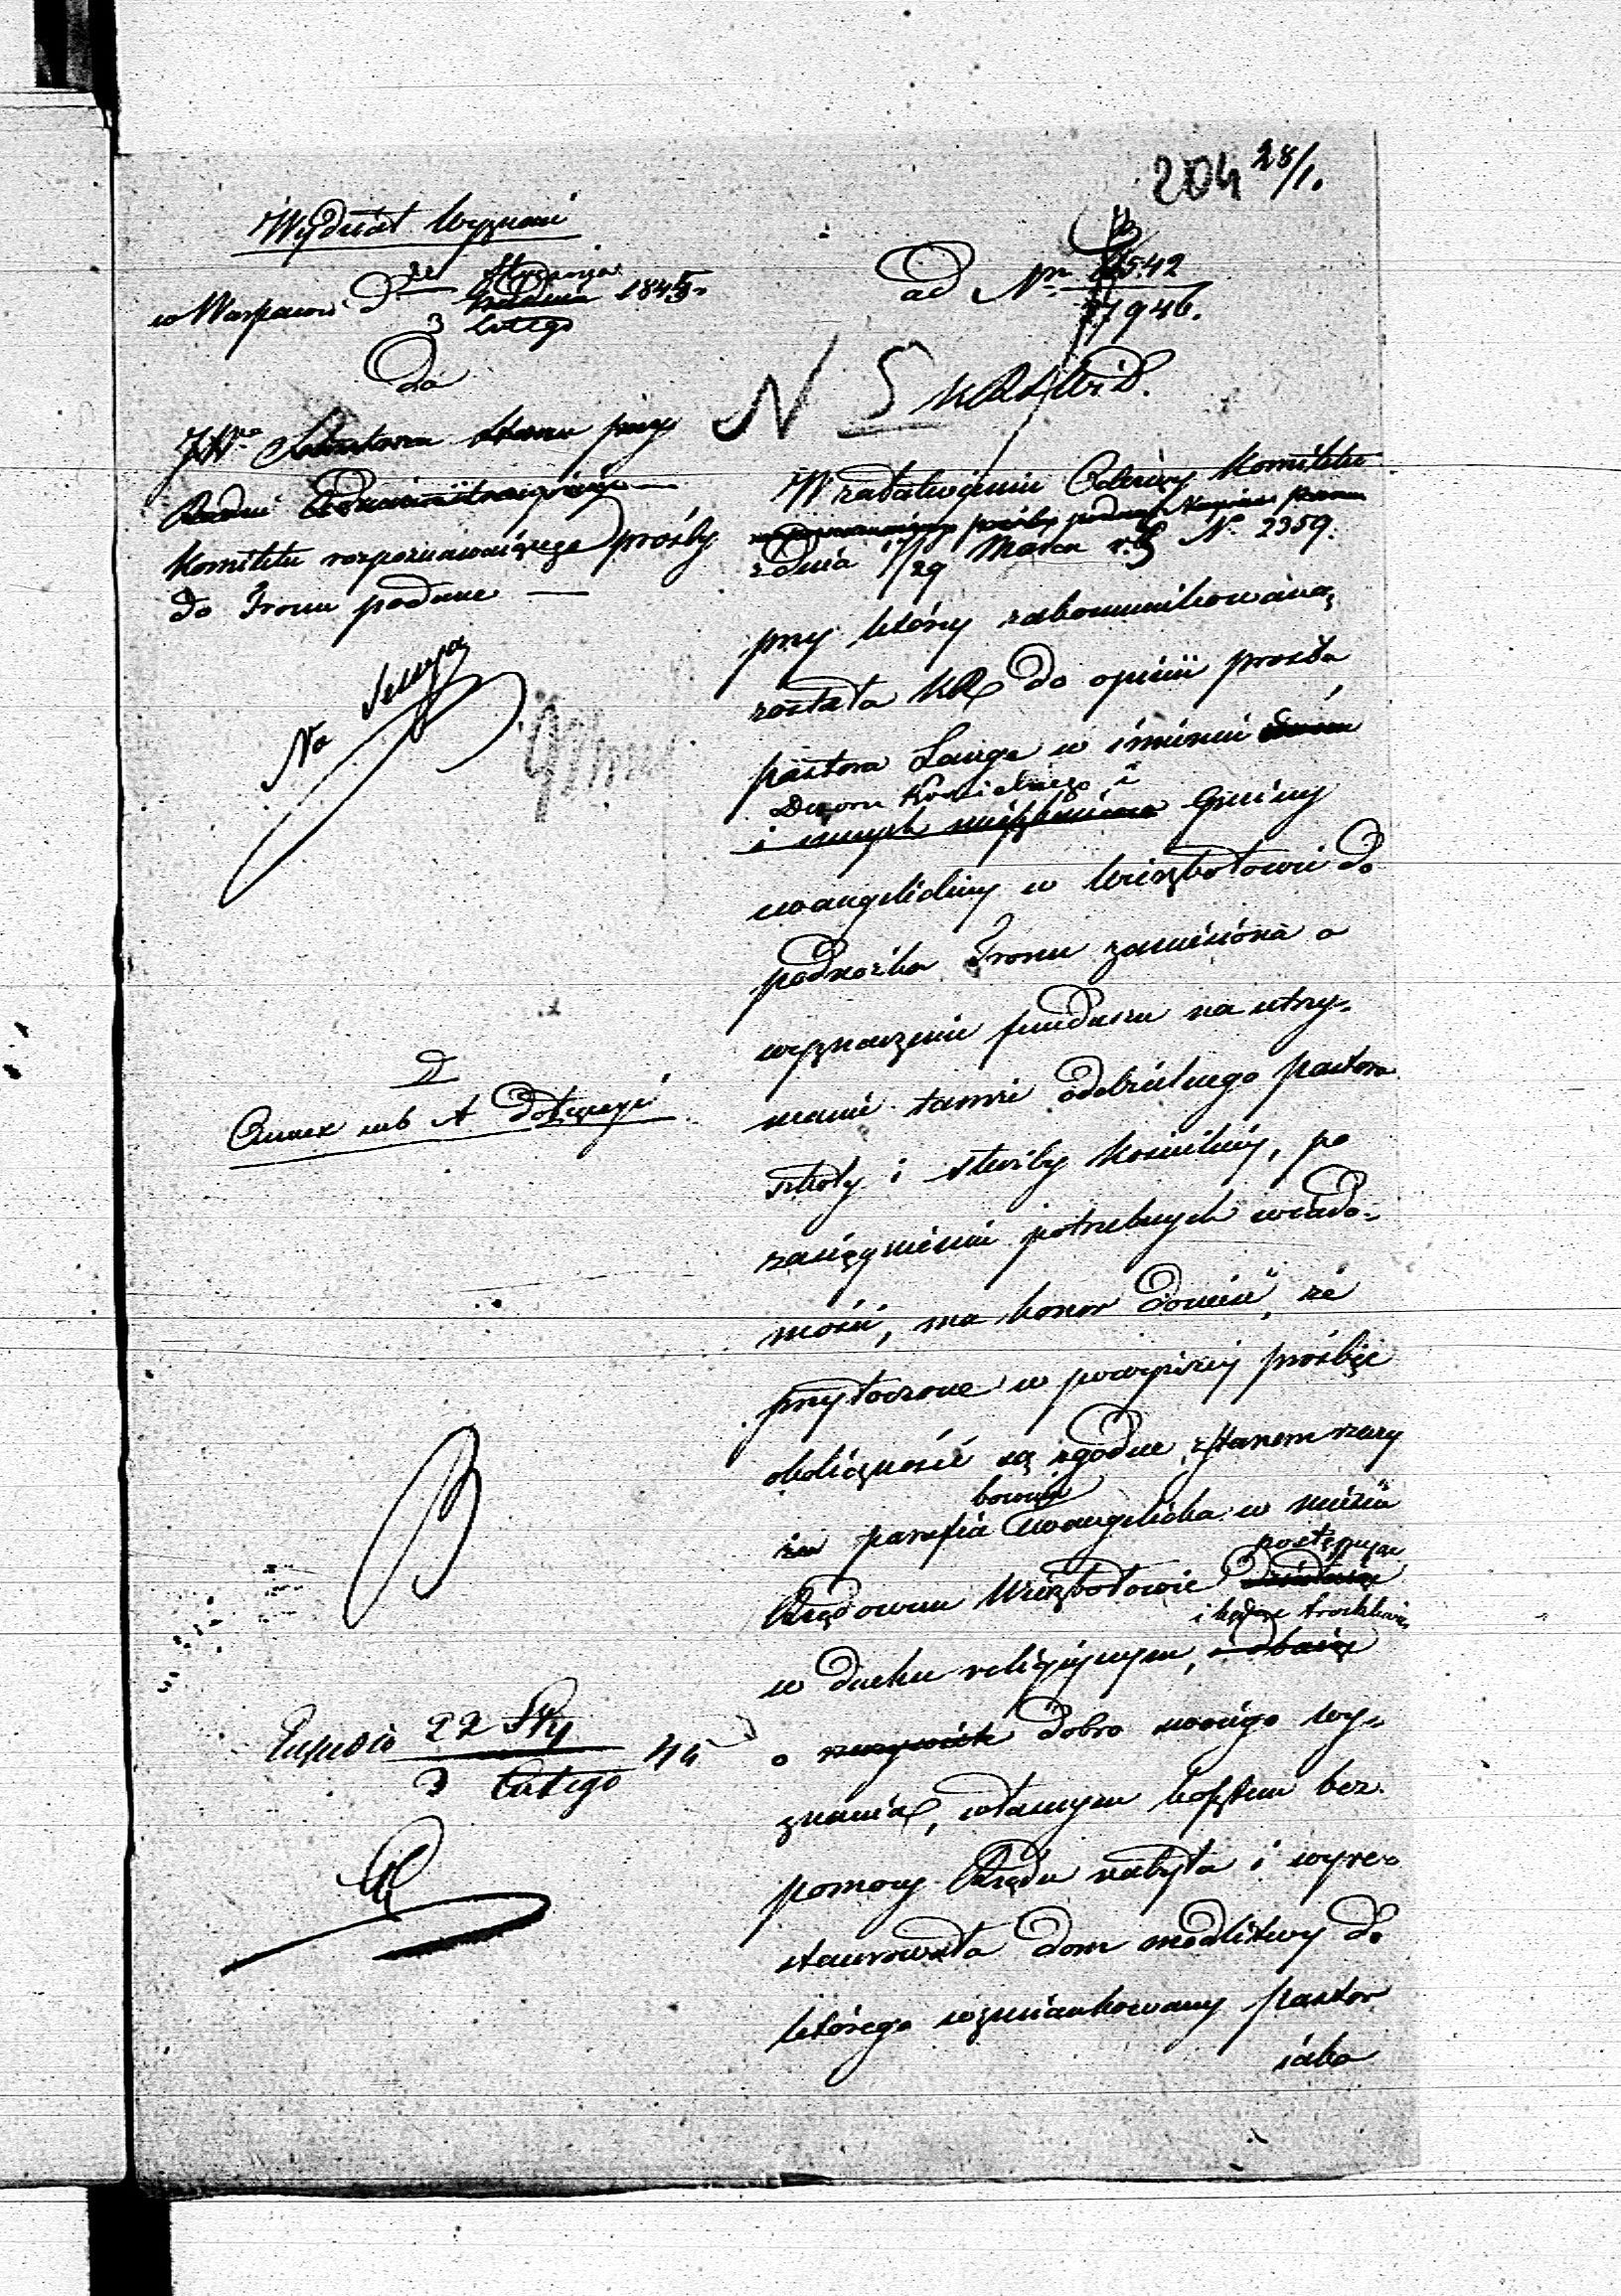 204 28/1.
Wydział Wyznań
w Warszawie d 22 Stycznia 184
3 Lutego
ad Nr 542
7946.
Do
JW Sekretarza Stanu przy
Radzie Administracyjnej
Komitetu rozpoznawającego prośby
do Tronu podane
N 5 KRSWiD.
W załatwieniu Odezwy Komitetu
z dnia 17/29 Marca r. z. Nr. 2359.
przy któréy zakommunikowaną
została KR do opinii prośba
pastora Lange w imieniu
Dozoru Kościelnego i
i innych mieszkańców Gminy
ewangelickiey w Wierzbołowie do
podnóżka Tronu zaniesiona o
wyznaczenie funduszu na utrzy-
manie tamże oddzielnego pastora
szkoły i służby kościelney, po
zaciągnieniu potrzebnych wiado-
mości, ma honor donieść, że
przytoczone w powyższey prośbie
okoliczności są zgodne z stanem rzeczy
bowiem
że parafia Ewangelicka w mieście
postępując
Rządowem Wierzbołowie działając
i będąc troskliwą
w duchu religijnym, i dbając
o dobro swoiego wy-
znania, własnym kosztem bez
pomocy Rządu nabyła i wyre-
staurowała dom modlitwy do
którego wzmiankowany pastor
iako
Na
Annex sub A dołączyć
Expedio 22 Sty
3 Lutego 44